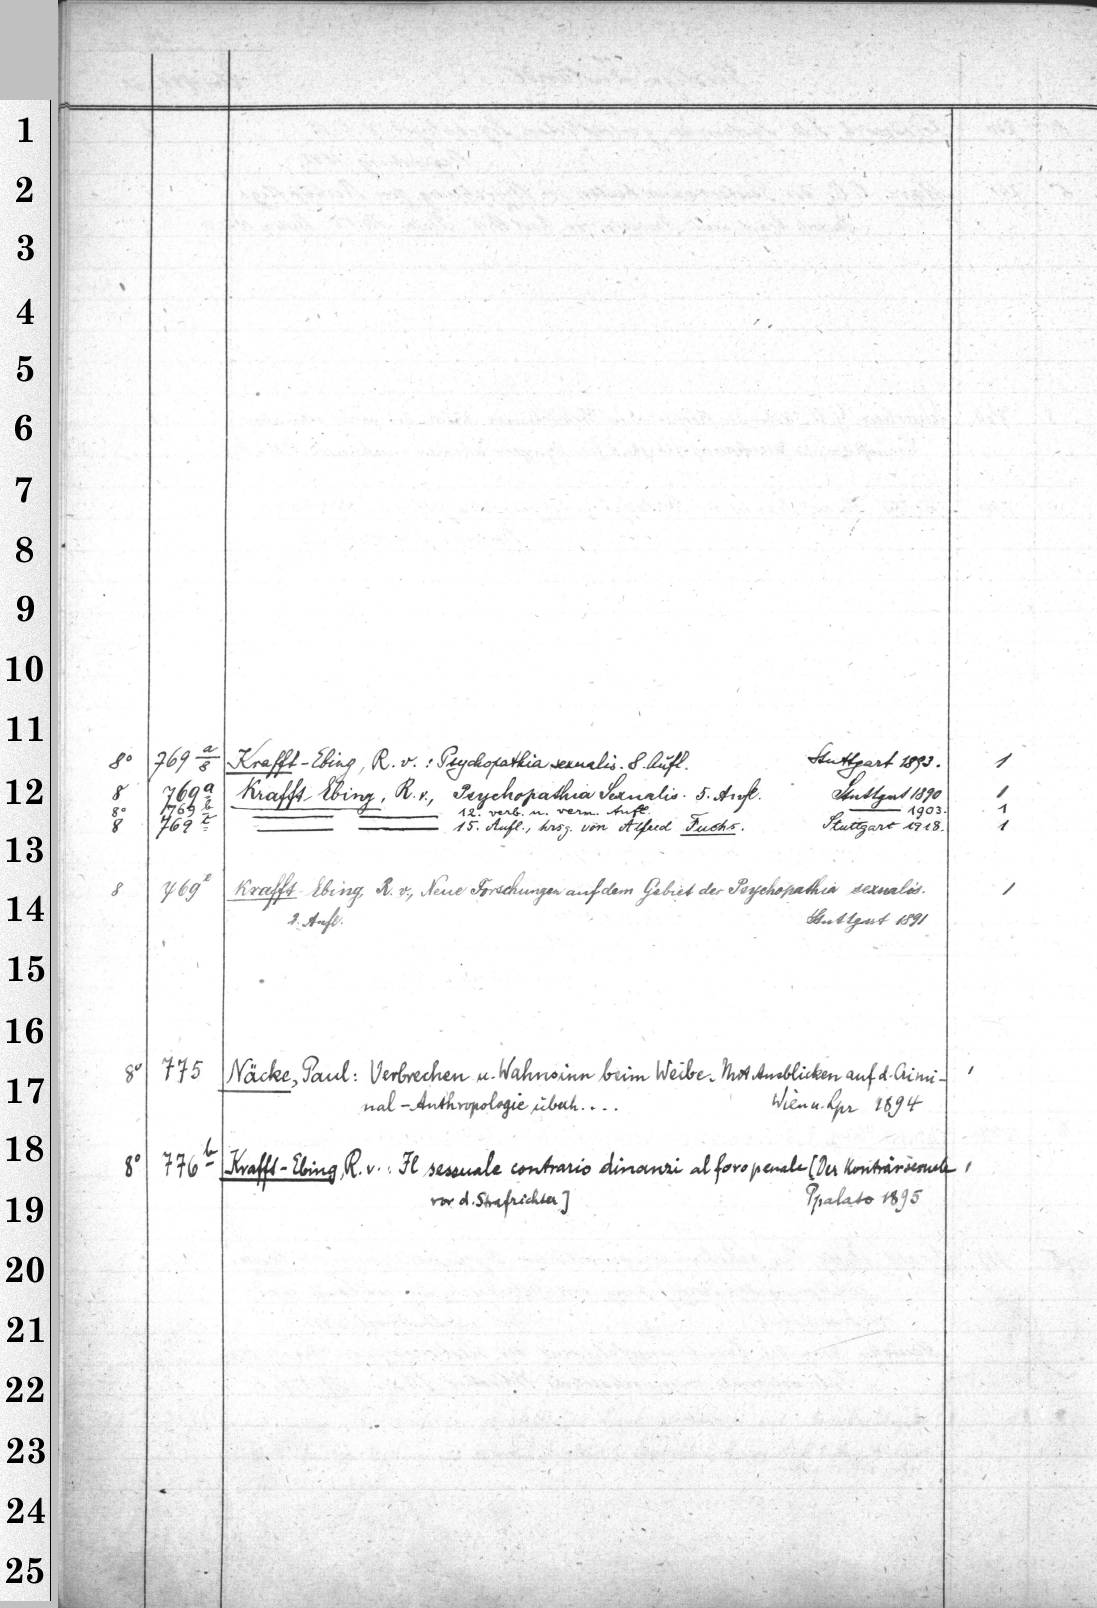 1
2
3
4
5
6
7
8
9
10
11
8° 769 a/8 Krafft-Ebing, R. v.: Psychopathia sexualis. 8. Aufl. Stuttgart 1893. 1
12
8 769 a Krafft Ebing, R. v., Psychopathia Sexualis. 5. Aufl. Stuttgart 1890 1
8° 769 b 12. verb. u. verm. Aufl. 1903. 1
8 769 c 15. Aufl., hrsg. von Alfred Fuchs. Stuttgart 1918. 1
13
8 769 e Krafft-Ebing, R. v., Neue Forschungen auf dem Gebiet der Psychopathia sexualis. 1
14
2. Aufl. Stuttgart 1891
15
16
8° 775 Näcke, Paul: Verbrechen u. Wahnsinn beim Weibe. Mit Ausblicken auf d. Crimi-
17
nal-Anthropologie überh.... Wien u. Lpz 1894
18
8° 776 b Krafft-Ebing, R. v.: Il sessuale contrario dinanzi al foro penale [Der Konträrsexuale
19
vor d. Strafrichter] 1895
20
21
22
23
24
25